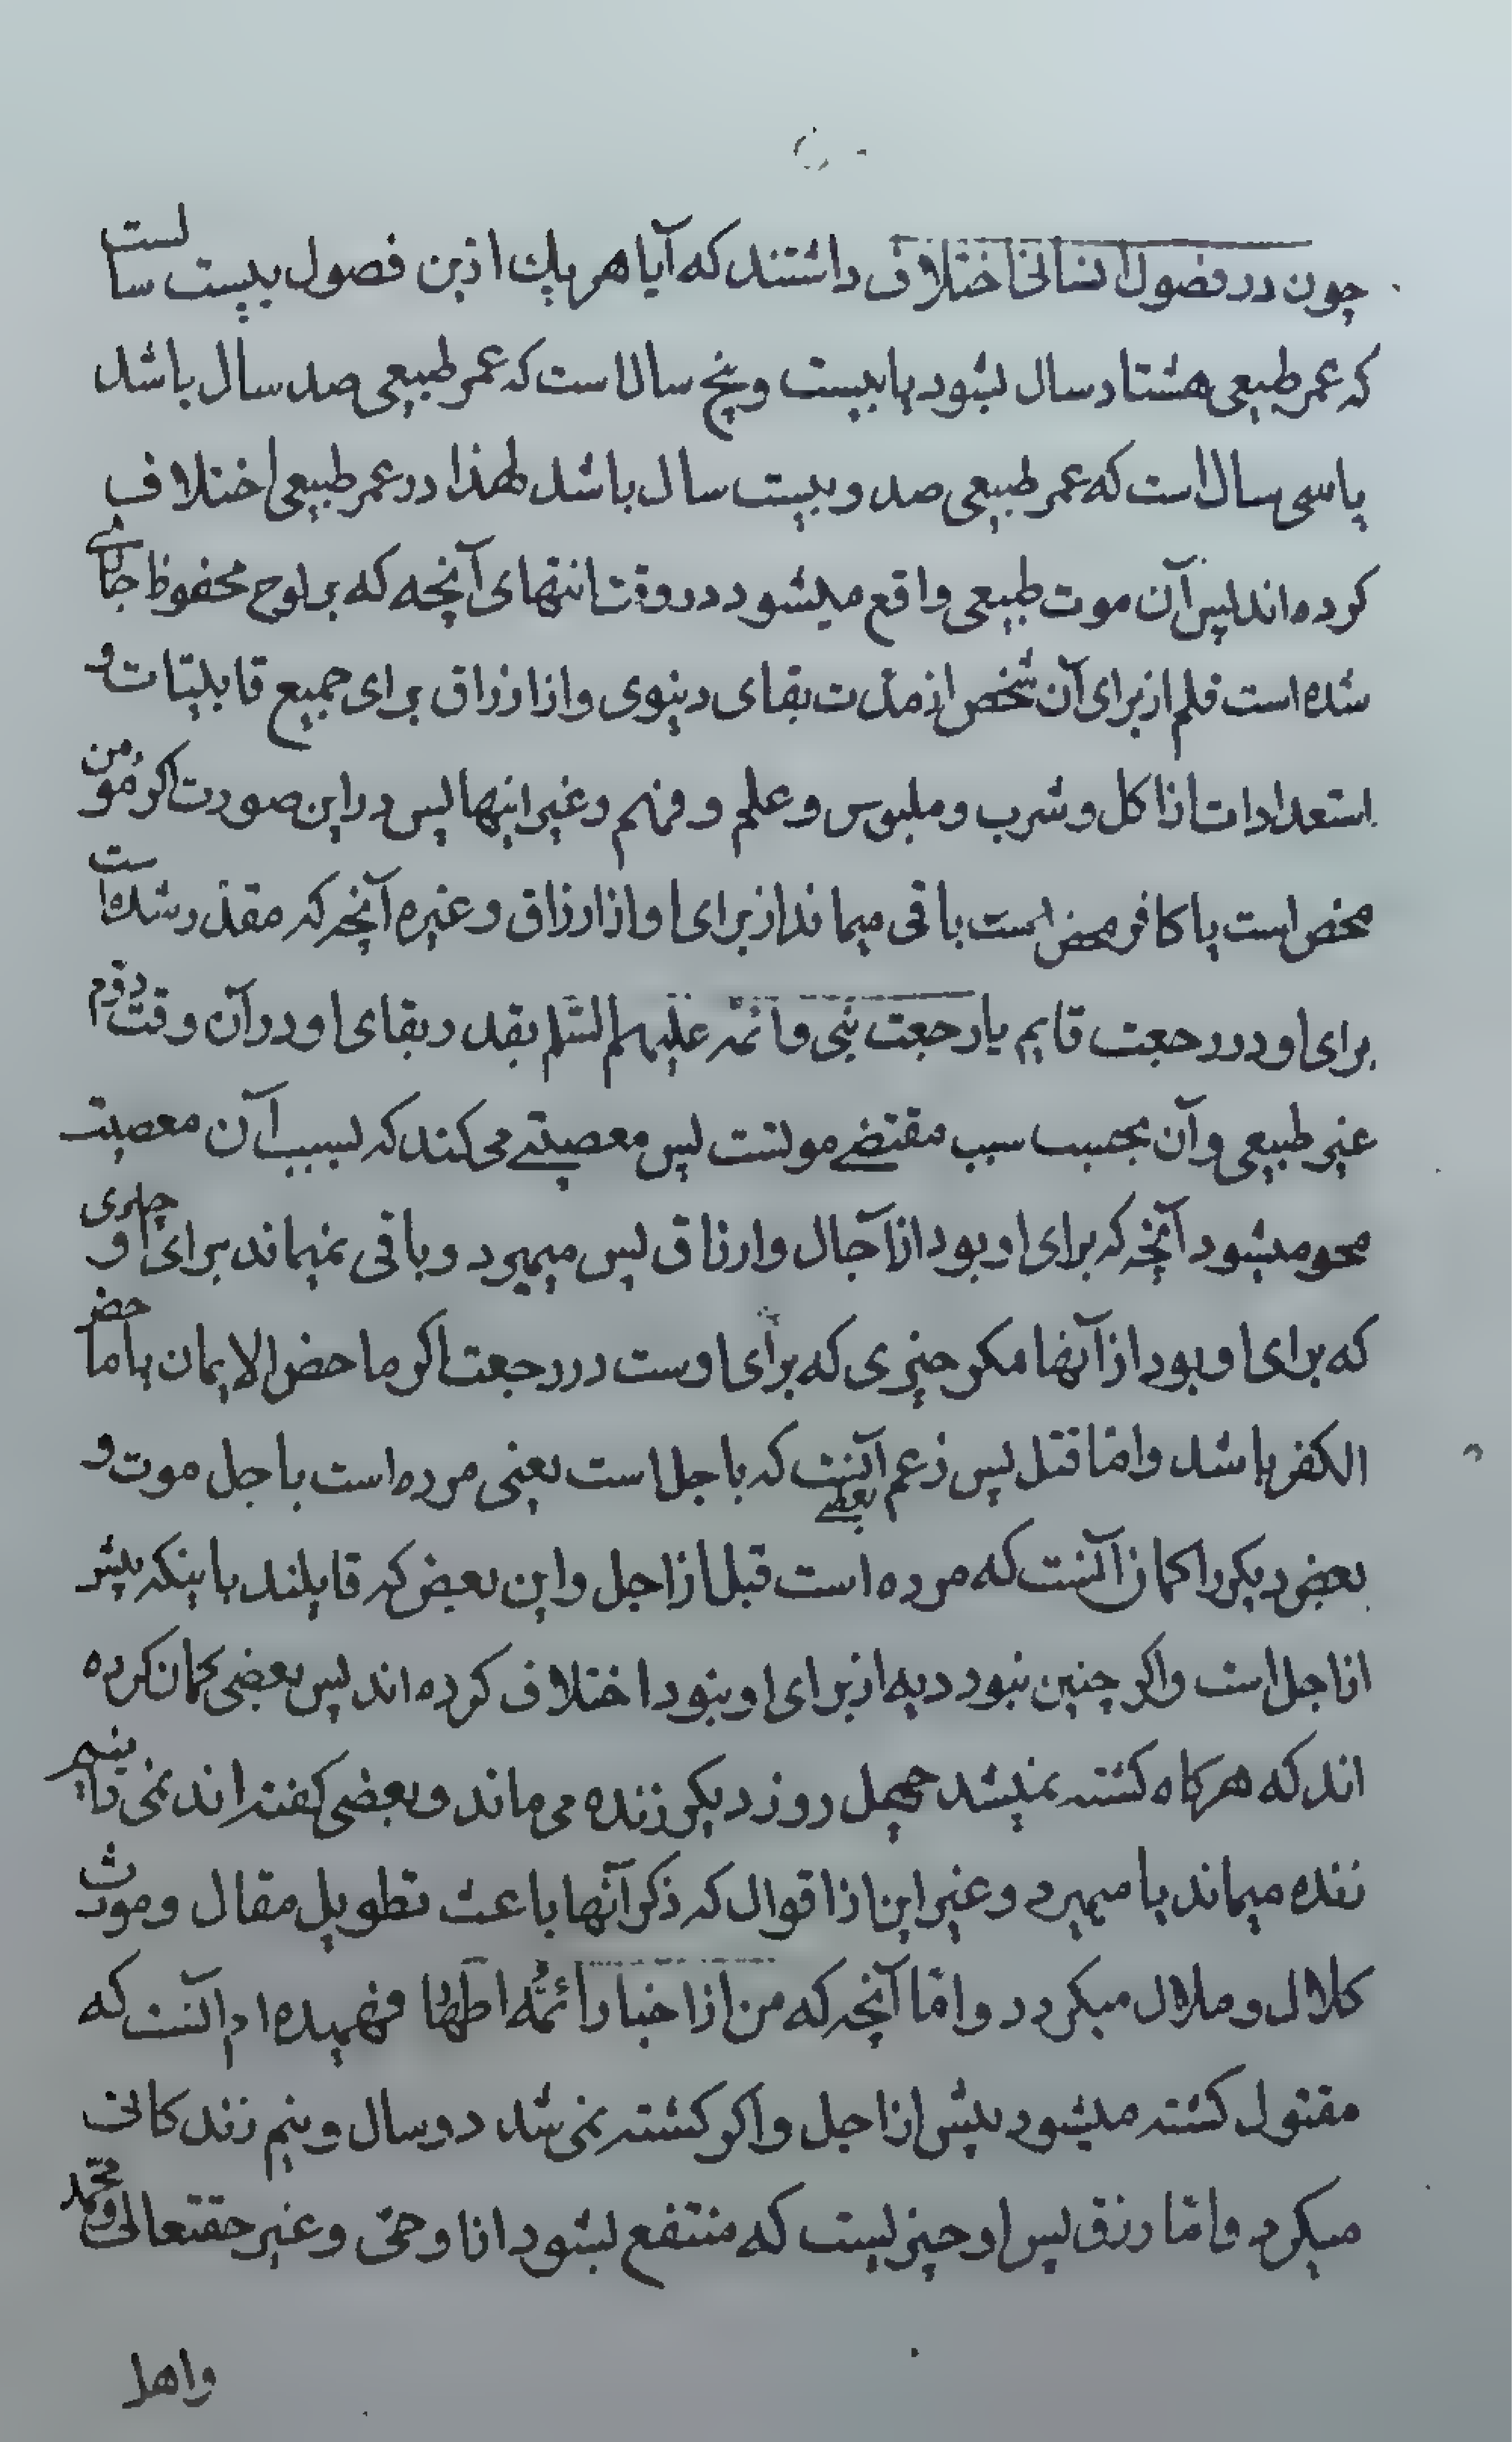 چون در فصول انسانی اختلاف داشتند که آیا هر یک ازین فصول بیست سالست
که عمر طبیعی هشتاد سال بشود یا بیست و پنج سال است که عمر طبیعی صد سال باشد
یا سی سال است که عمر طبیعی صد و بیست سال باشد لهذا در عمر طبیعی اختلاف
کرده‌اند پس آن موت طبیعی واقع میشود در وقت انتهای آنچه که بر لوح محفوظ جاری
شده است قلم از برای آن شخص از مدّت بقای دنیوی و از ارزاق برای جمیع قابلیّات و
استعدادات از اکل و شرب و ملبوس و علم و فهم و غیر اینها پس در این صورت اکر مؤمن
محض است یا کافر محض است باقی میماند از برای او از ارزاق و غیره آنچه که مقدّر شده است
برای او در رجعت قایم یا رجعت نبی و ائمّه علیهم السّلم بقدر بقای او در آن وقت دوّم
غیر طبیعی و آن بحسب سبب مقتضی موتست پس معصیتی می کند که بسبب آن معصیت
محو میشود آنچه که برای او بود از آجال و ارزاق پس میمیرد و باقی نمیماند برای او چیزی
که برای او بود از آنها مکر چیزی که برای اوست در رجعت اکر ماحض الایمان یا ماحض
الکفر باشد و امّا قتل پس زعم بعضی آنست که باجل است یعنی مرده است باجل موت و
بعض دیکر را کمان آنست که مرده است قبل از اجل و این بعض که قایلند باینکه پیشتر
از اجل است و اکر چنین نبود دیه از برای او نبود اختلاف کرده‌اند پس بعضی کمان کرده
اند که هرکاه کشته نمیشد چهل روز دیکر زنده می ماند و بعضی کفته‌اند نمی دانیم
زنده میماند یا میمیرد و غیر این از اقوال که ذکر آنها باعث تطویل مقال و مورث
کلال و ملال میکردد و امّا آنچه که من از اخبار ائمّه اطهار فهمیده‌ام آنست که
مقتول کشته میشود پیش از اجل و اکر کشته نمی شد دو سال و نیم زندکانی
میکرد و امّا رزق پس او چیزیست که منتفع بشود از او حیّ و غیر حقتعالی و محمّد
واهل